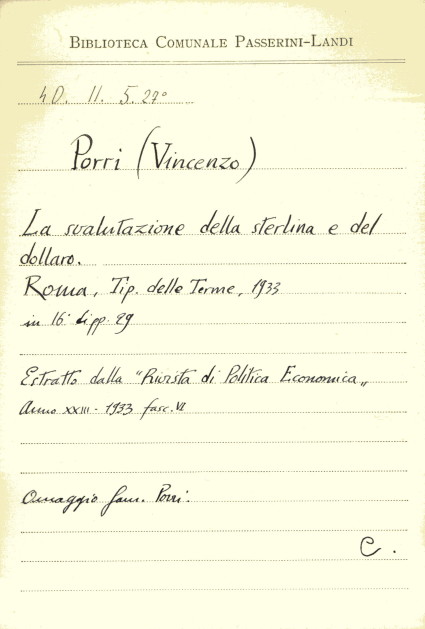 BIBLIOTECA COMUNALE PASSERINI-LANDI
40. 11. 5. 27°
Porri (Vincenzo)
La svalutazione della sterlina e del
dollaro.
Roma, Tip. delle Terme, 1933
in 16° pp. 29
Estratto dalla "Rivista di Politica Economica„
Anno XXIII - 1933 fasc. VI
Omaggio fam. Porri.
C.